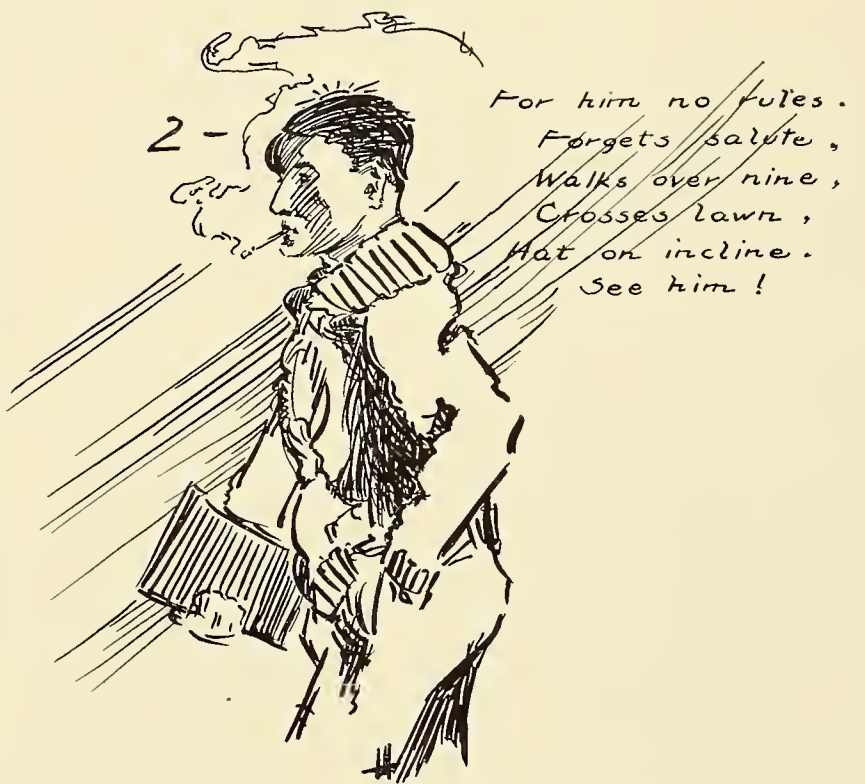 2 -
For him no rules.
Forgets salute,
Walks over nine,
Crosses lawn,
Hat on incline.
See him!